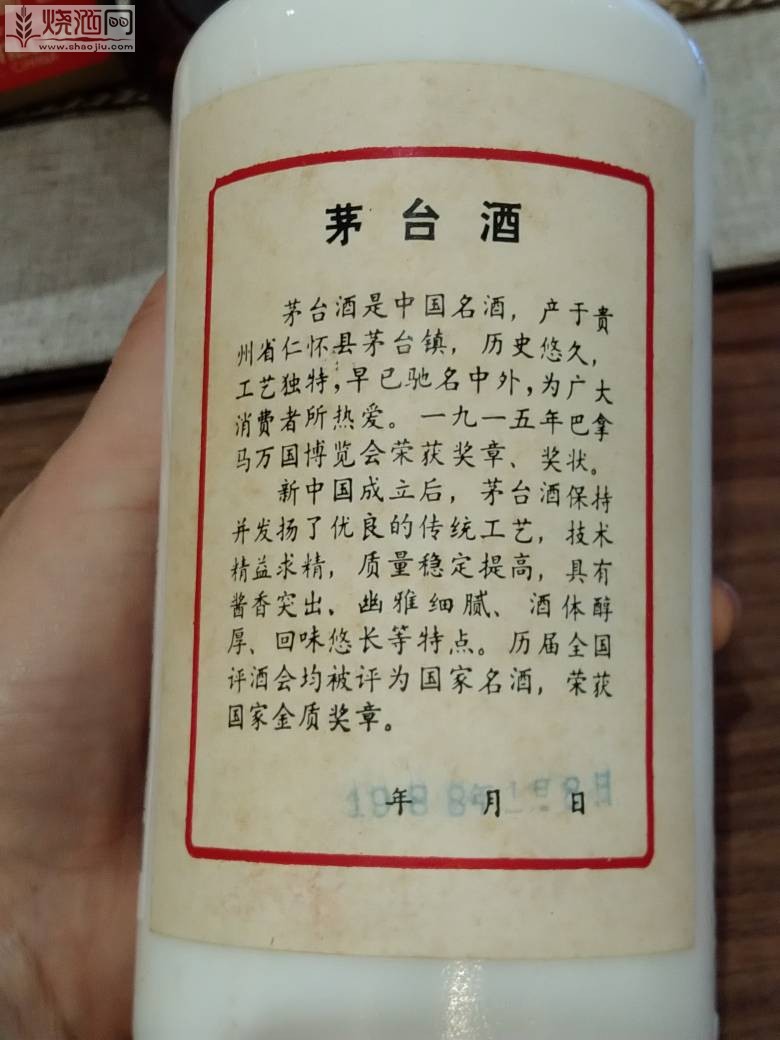 烧酒网
www.shaojiu.com
茅台酒
茅台酒是中国名酒，产于贵
州省仁怀县茅台镇，历史悠久，
工艺独特，早已驰名中外，为广大
消费者所热爱。一九一五年巴拿
马万国博览会荣获奖章、奖状。
新中国成立后，茅台酒保持
并发扬了优良的传统工艺，技术
精益求精，质量稳定提高，具有
酱香突出、幽雅细腻、酒体醇
厚、回味悠长等特点。历届全国
评酒会均被评为国家名酒，荣获
国家金质奖章。
年 月 日